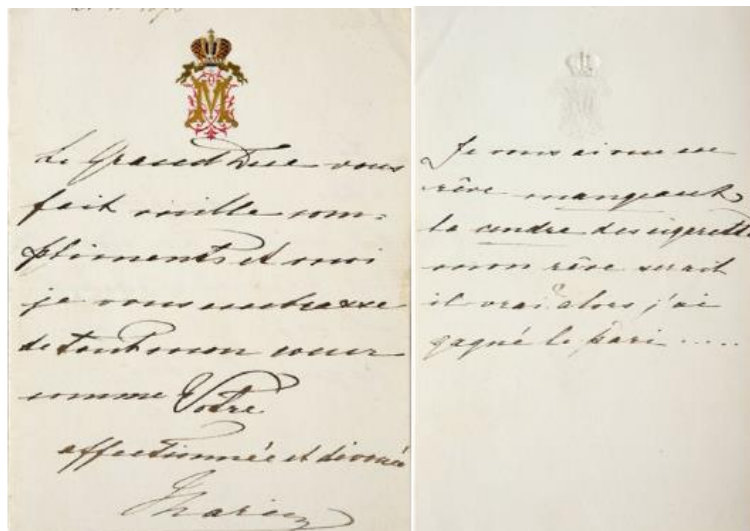 M
Le Grand Duc vous
fait mille com=
pliments et moi
je vous embrasse
de tout mon coeur
comme Votre
affectionnée et dévouée
Marie
M
Je vous ai vue en
rêve mangeant
la cendre des cigarettes
mon rêve serait
il vrai? alors j'ai
gagné le pari .....